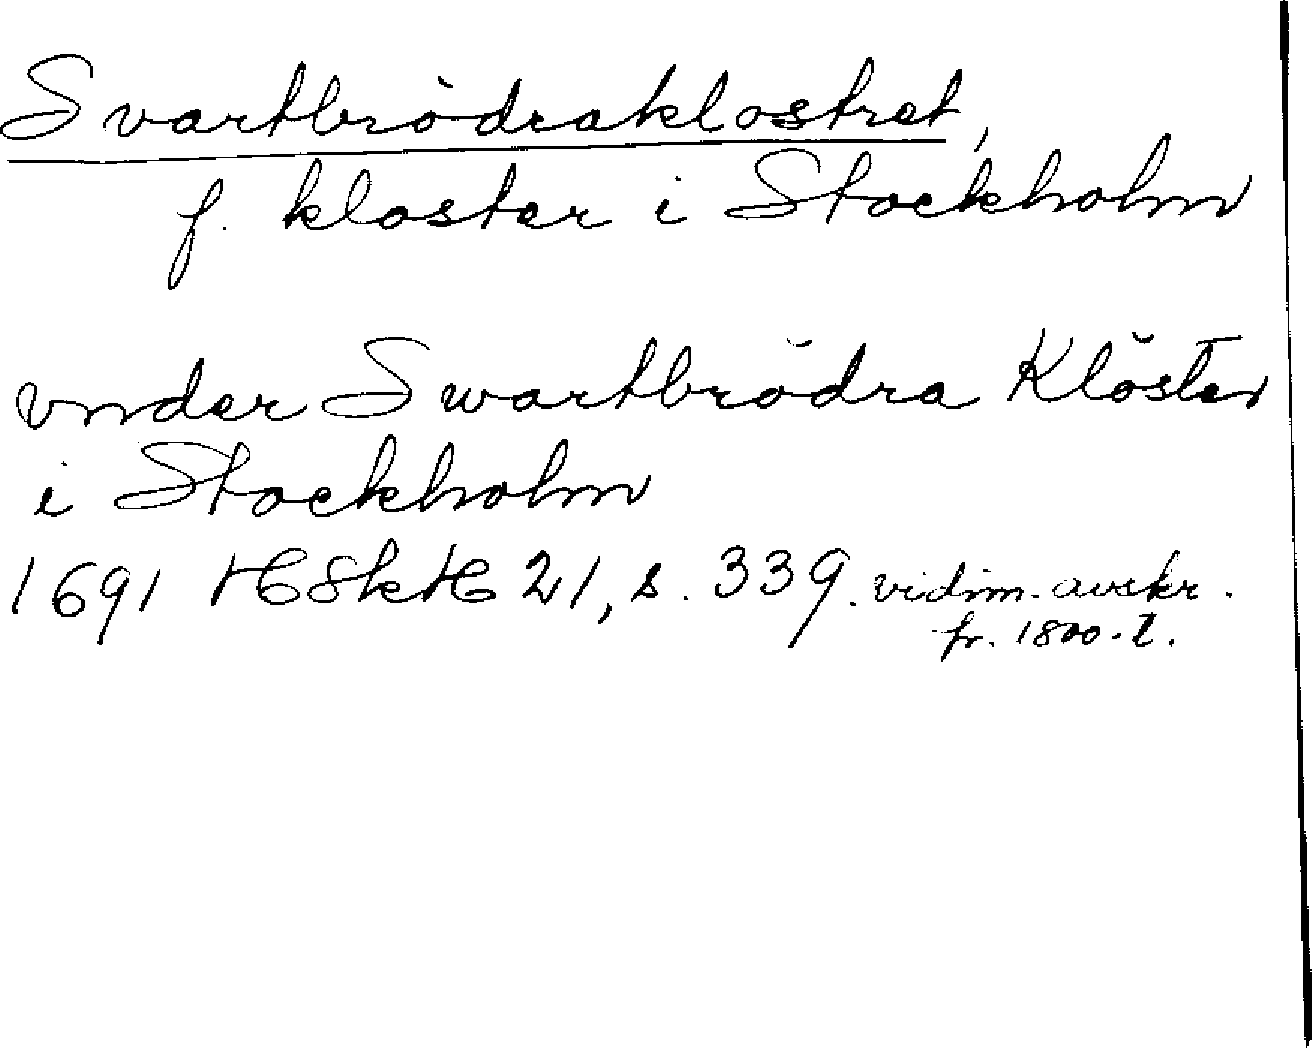 Svartbrödraklostret,
f. kloster i Stockholm
vnder Swartbrödra Klöster
i Stockholm
1691 HSkH 21, s. 339. vidim. avskr.
fr. 1800-t.